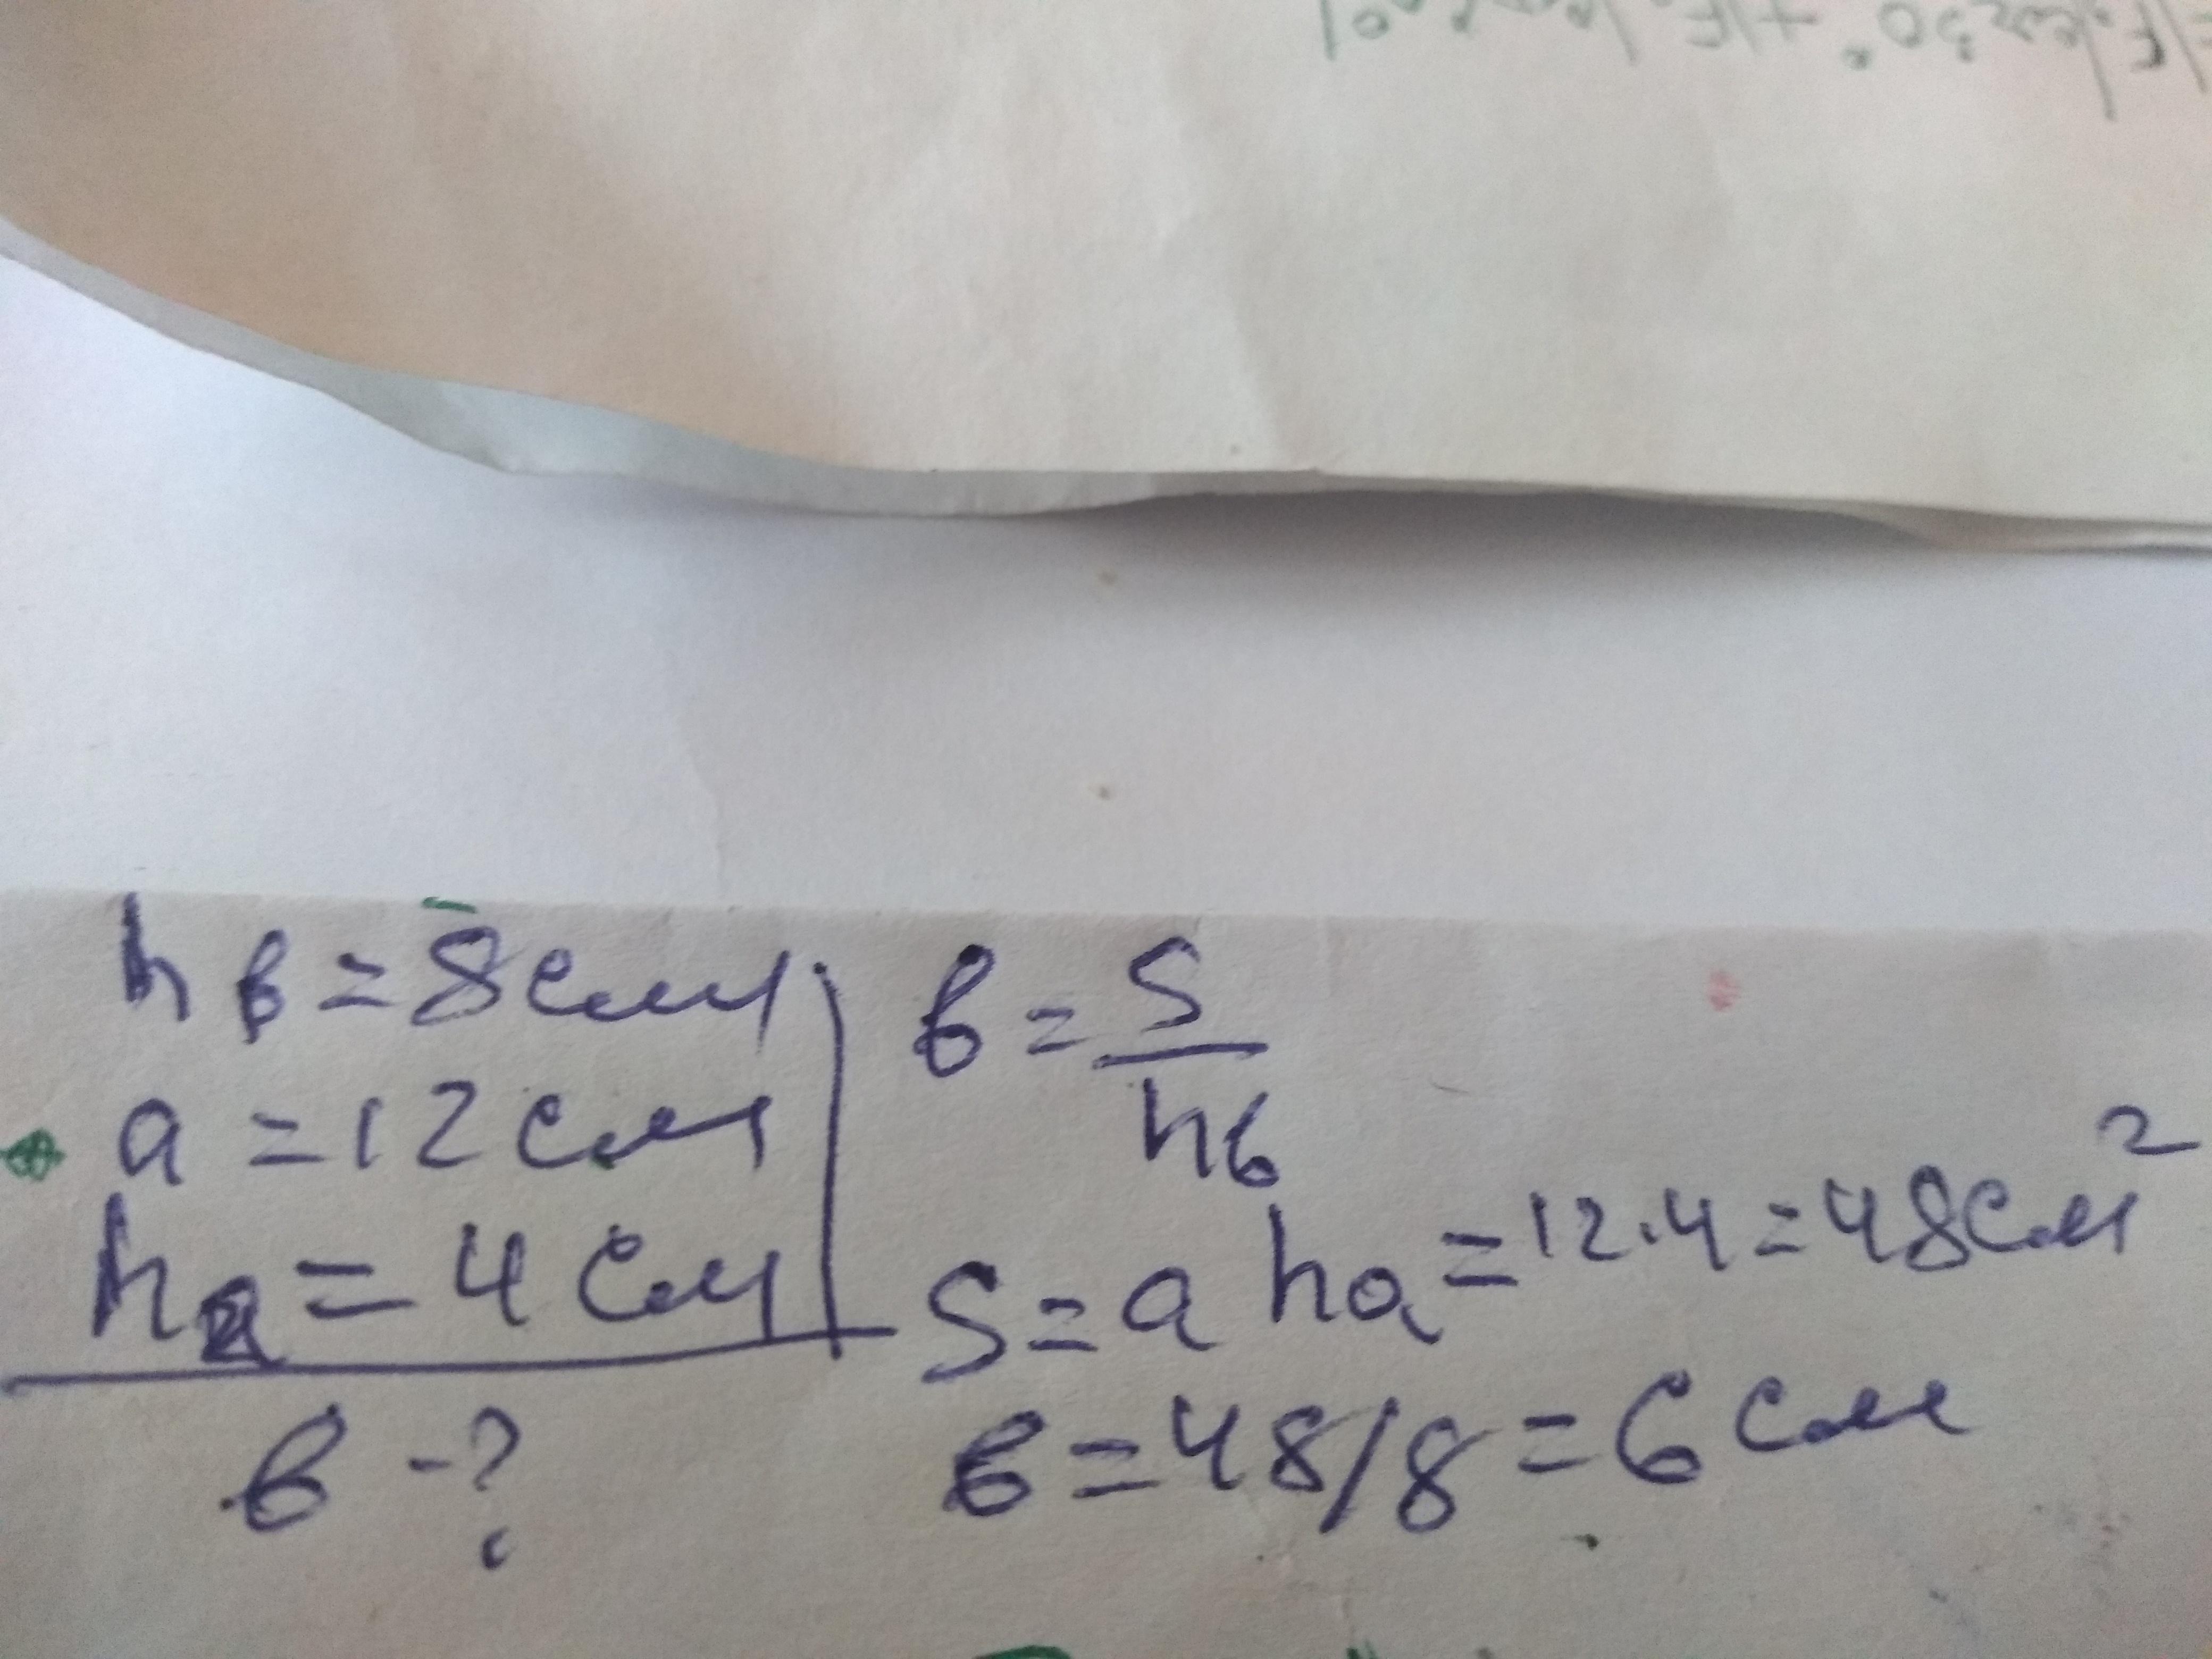 hв = 8 см
a = 12 см
ha = 4 см
в - ?
в = S/hв
S = a ha = 12·4 = 48 см²
в = 48/8 = 6 см